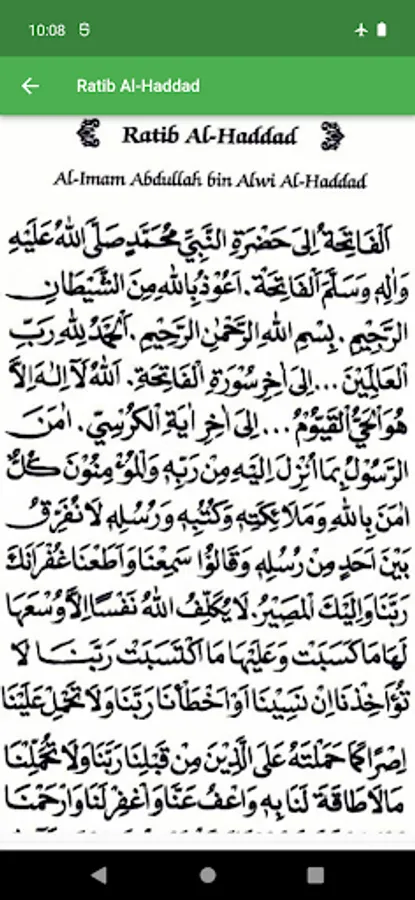 10:08
Ratib Al-Haddad
Ratib Al-Haddad
Al-Imam Abdullah bin Alwi Al-Haddad
اَلْفَاتِحَةُ اِلَى حَضْرَةِ النَّبِيِّ مُحَمَّدٍ صَلَّى اللهُ عَلَيْهِ
وَاٰلِهِ وَسَلَّمَ اَلْفَاتِحَةْ. اَعُوْذُ بِاللهِ مِنَ الشَّيْطَانِ
الرَّجِيْمِ. بِسْمِ اللهِ الرَّحْمٰنِ الرَّحِيْمِ. اَلْحَمْدُ لِلّٰهِ رَبِّ
الْعَالَمِيْنَ ... اِلَى اٰخِرِ سُوْرَةِ الْفَاتِحَةِ. اَللهُ لَآ اِلٰهَ اِلَّا
هُوَ الْحَيُّ الْقَيُّوْمُ ... اِلَى اٰخِرِ اٰيَةِ الْكُرْسِيِّ. اٰمَنَ
الرَّسُوْلُ بِمَا اُنْزِلَ اِلَيْهِ مِنْ رَبِّهِ وَالْمُؤْمِنُوْنَ كُلٌّ
اٰمَنَ بِاللهِ وَمَلَائِكَتِهِ وَكُتُبِهِ وَرُسُلِهِ لَا نُفَرِّقُ
بَيْنَ اَحَدٍ مِنْ رُسُلِهِ وَقَالُوْا سَمِعْنَا وَاَطَعْنَا غُفْرَانَكَ
رَبَّنَا وَاِلَيْكَ الْمَصِيْرُ. لَا يُكَلِّفُ اللهُ نَفْسًا اِلَّا وُسْعَهَا
لَهَا مَا كَسَبَتْ وَعَلَيْهَا مَا اكْتَسَبَتْ رَبَّنَا لَا
تُؤَاخِذْنَا اِنْ نَسِيْنَا اَوْ اَخْطَأْنَا رَبَّنَا وَلَا تَحْمِلْ عَلَيْنَا
اِصْرًا كَمَا حَمَلْتَهُ عَلَى الَّذِيْنَ مِنْ قَبْلِنَا رَبَّنَا وَلَا تُحَمِّلْنَا
مَا لَا طَاقَةَ لَنَا بِهِ وَاعْفُ عَنَّا وَاغْفِرْ لَنَا وَارْحَمْنَا